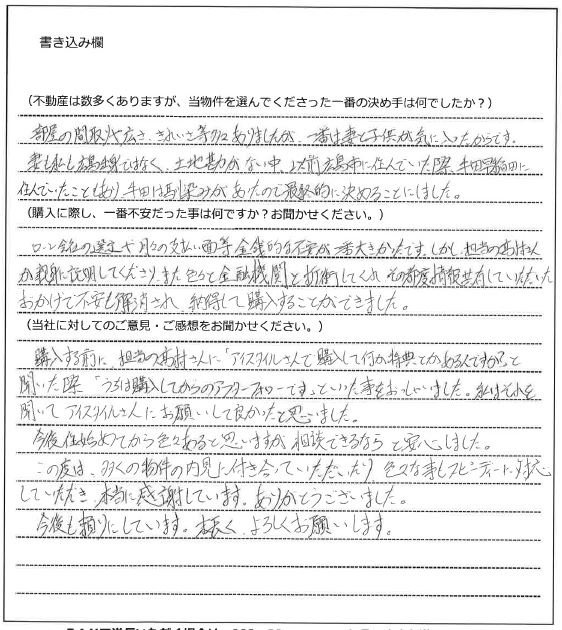 書き込み欄
(不動産は数多くありますが、当物件を選んでくださった一番の決め手は何でしたか?)
部屋の間取りや広さ、きれいさ等々ありましたが、一番は妻と子供が気に入ったからです。
妻も私も広島出身ではなく、土地勘がない中、以前広島市に住んでいた際、牛田早稲田に
住んでいたこともあり、牛田は馴染みがあったので最終的に決めることにしました。
(購入に際し、一番不安だった事は何ですか?お聞かせください。)
ローン会社の選定や月々の支払い面等金銭的な不安が一番大きかったです。しかし、担当の高村さん
が親身に説明してくださり、また色々と金融機関と折衝してくれ、その都度情報共有していただいた
おかげで不安も解消され、納得して購入することができました。
(当社に対してのご意見・ご感想をお聞かせください。)
購入する前に、担当の高村さんに「アイスタイルさんで購入して何か特典とかあるんですか」と
聞いた際「うちは購入してからのアフターフォローです」といった事をおっしゃいました。私はそれを
聞いてアイスタイルさんにお願いして良かったと思いました。
今後住み始めてから色々あると思いますが、相談できるなら と安心しました。
この度は、多くの物件の内見に付き合っていただいたり、色々な事もスピーディーに対応
していただき、本当に感謝しています。ありがとうございました。
今後も頼りにしています。末長く、よろしくお願いします。